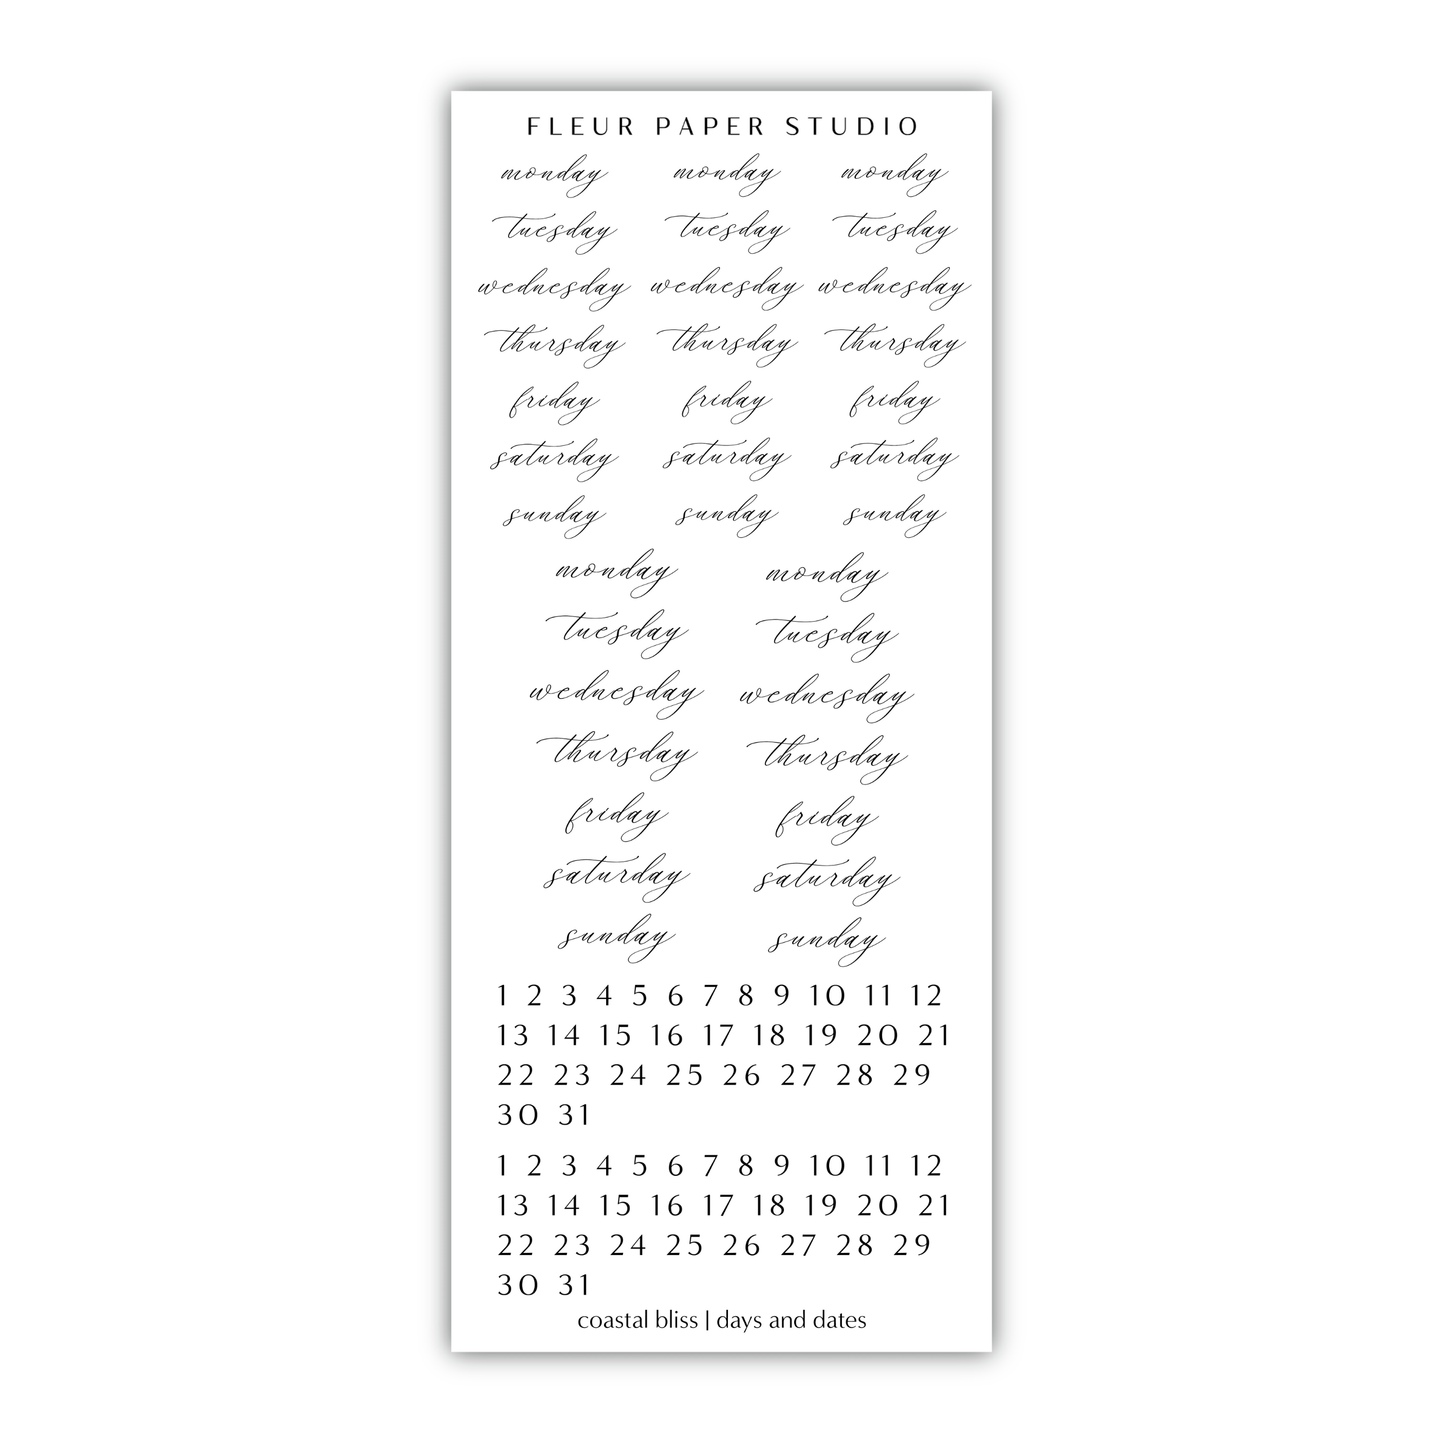 FLEUR PAPER STUDIO
monday monday monday
tuesday tuesday tuesday
wednesday wednesday wednesday
thursday thursday thursday
friday friday friday
saturday saturday saturday
sunday sunday sunday
monday monday
tuesday tuesday
wednesday wednesday
thursday thursday
friday friday
saturday saturday
sunday sunday
1 2 3 4 5 6 7 8 9 10 11 12
13 14 15 16 17 18 19 20 21
22 23 24 25 26 27 28 29
30 31
1 2 3 4 5 6 7 8 9 10 11 12
13 14 15 16 17 18 19 20 21
22 23 24 25 26 27 28 29
30 31
coastal bliss | days and dates